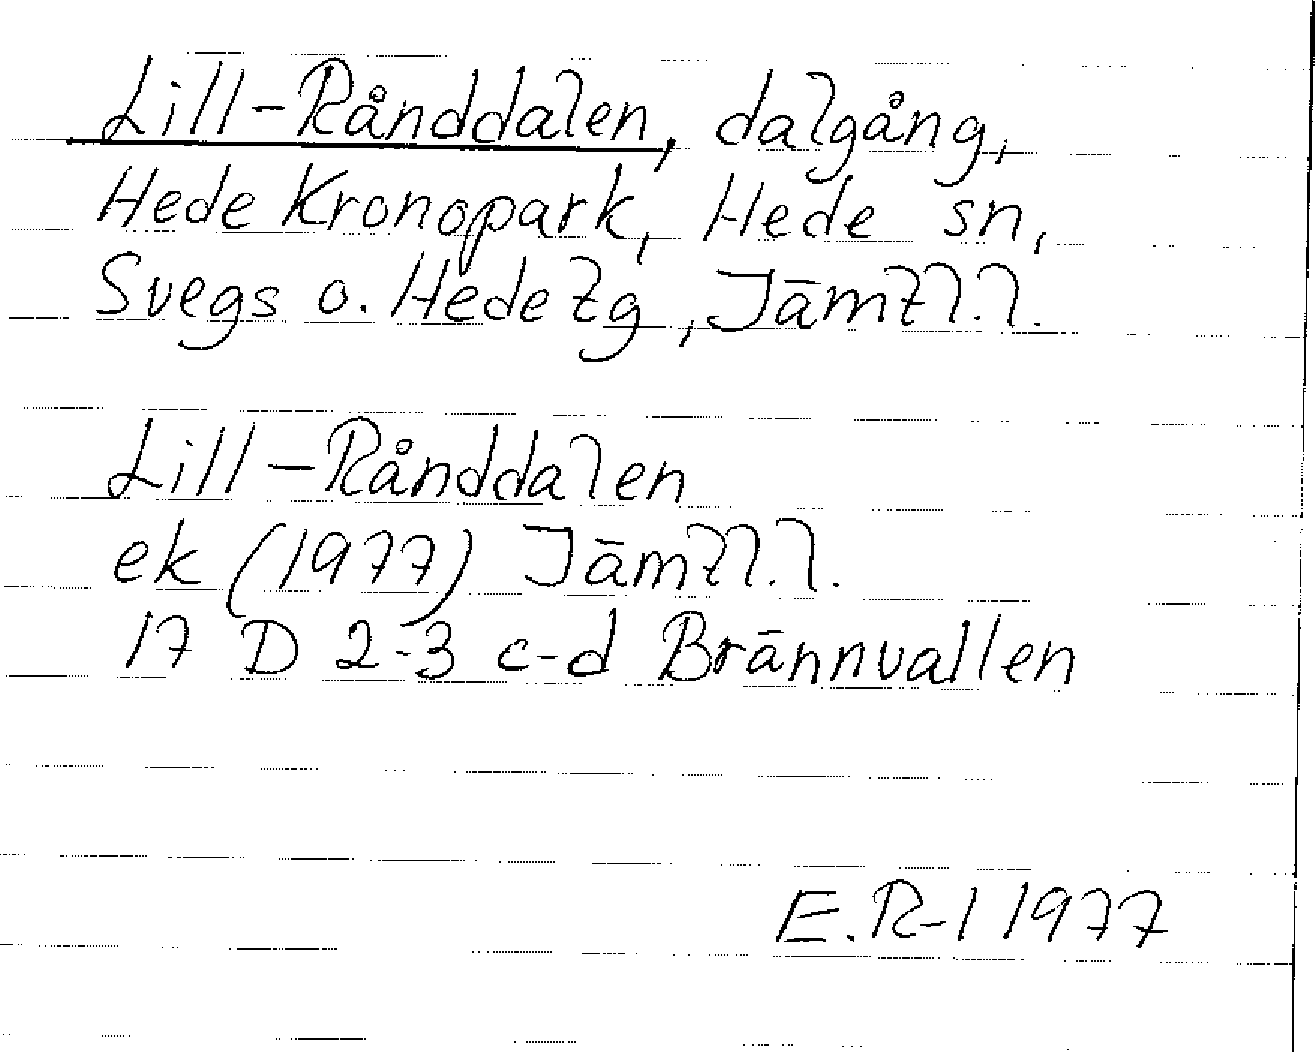 Lill-Rånddalen, dalgång,
Hede Kronopark, Hede sn,
Svegs o. Hede tg, Jämtl.l.
Lill-Rånddalen
ek (1977) Jämtl.l.
17 D 2-3 c-d Brännvallen
E.R-l 1977